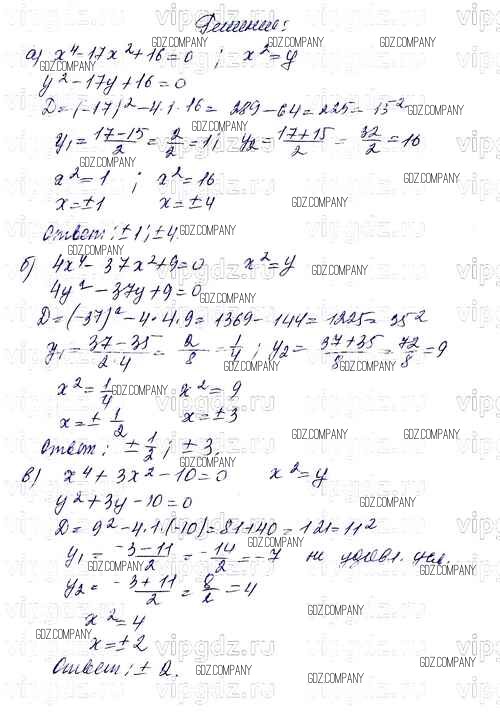 Решение:
а) x⁴-17x²+16=0 ; x²=y
y²-17y+16=0
D=(-17)²-4·1·16= 289-64=225= 15²
y₁= 17-15/2 = 2/2 =1; y₂= 17+15/2 = 32/2 =16
x²=1 ; x²=16
x=±1 x=±4
Ответ: ±1; ±4.
б) 4x⁴-37x²+9=0 x²=y
4y²-37y+9=0
D=(-37)²-4·4·9=1369-144=1225=35²
y₁= 37-35/2·4 = 2/8 = 1/4 ; y₂= 37+35/8 = 72/8 =9
x²= 1/4 x²=9
x=± 1/2 x=±3
Ответ: ± 1/2 ; ±3.
в) x⁴+3x²-10=0 x²=y
y²+3y-10=0
D= 9²-4·1·(-10)=81+40=121=11²
y₁= -3-11/2 = -14/2 =-7 не удовл. усл.
y₂= -3+11/2 = 8/2 =4
x²=4
x=±2
Ответ: ± 2.
GDZ.COMPANY
vipgdz.ru